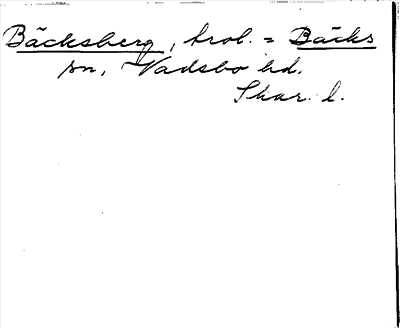 Bäcksberg, trol. = Bäcks
sn, Vadsbo hd.
Skar. l.